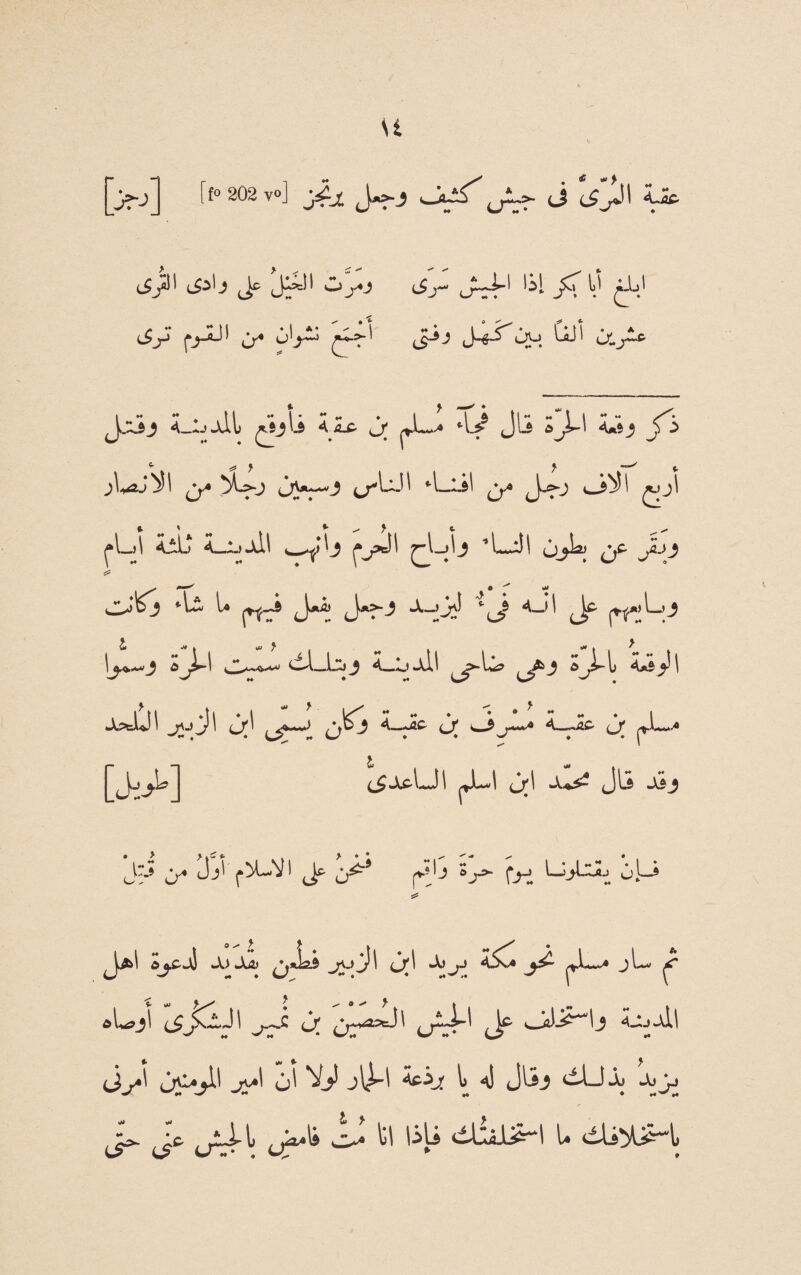 ١٤
عقبة المُرّىّ فى جيش كثيف وجعل يرتجز [fº 202 vº] [رجز]
ابلغ أبا بكر إذا الجيش سَرَى ومَرَّت الخَيْلُ على وادى القُرَى
عشرين أَلْفًا بين كَهْل وفتى أَجَمْعَ نشوان من القوم ترى
ذكر وقعة الحرّة قال فجآءَ مُسلم بن عقبة فأَوقع بالمدينة وقتل
أربع آلاف رَجُل من افناء الناس وسبعين رجُلًا من الأَنصار
وبَقَر عن بطون النساء وأباح الحُرَم وأَنهب المدينة ثلثة أيام
وبايعهم على انّه فَىْءٌ ليزيد وجعل يفعل فيهم ما شآء وكانت
الوقعة بالحرّة وهى ضاحى المدينة وبتلك سُمّيت الحرّة وسمّوا
مسلم بن عقبة مُسْرِف بن عقبة وكان يُسمّى ابن الزبير المُلْحد
وقد قال محمّد ابن اسلم الساعدىّ [طويل]
فإن يقتلونا يومَ حَرّةَ وَاقِمٍ فنحنُ على الاسلام أَوّلُ من قُتِلْ
ثم سار مسلم نحو مكّة يريد ابن الزبير فطُعن بقُدَيْد لدعوة أهل
المدينة واستخلف على الجيش الحُصَيْن بن نُمير السَّكُونىّ أوصاه
يزيدُ بذلك وقال له يا برذعة الحمار لولا أنّ امير المؤمنين أمرنى
باستخلافك ما استخلفتُك فإذا انا مُتُّ فامض بالجيش عنّى حتّى